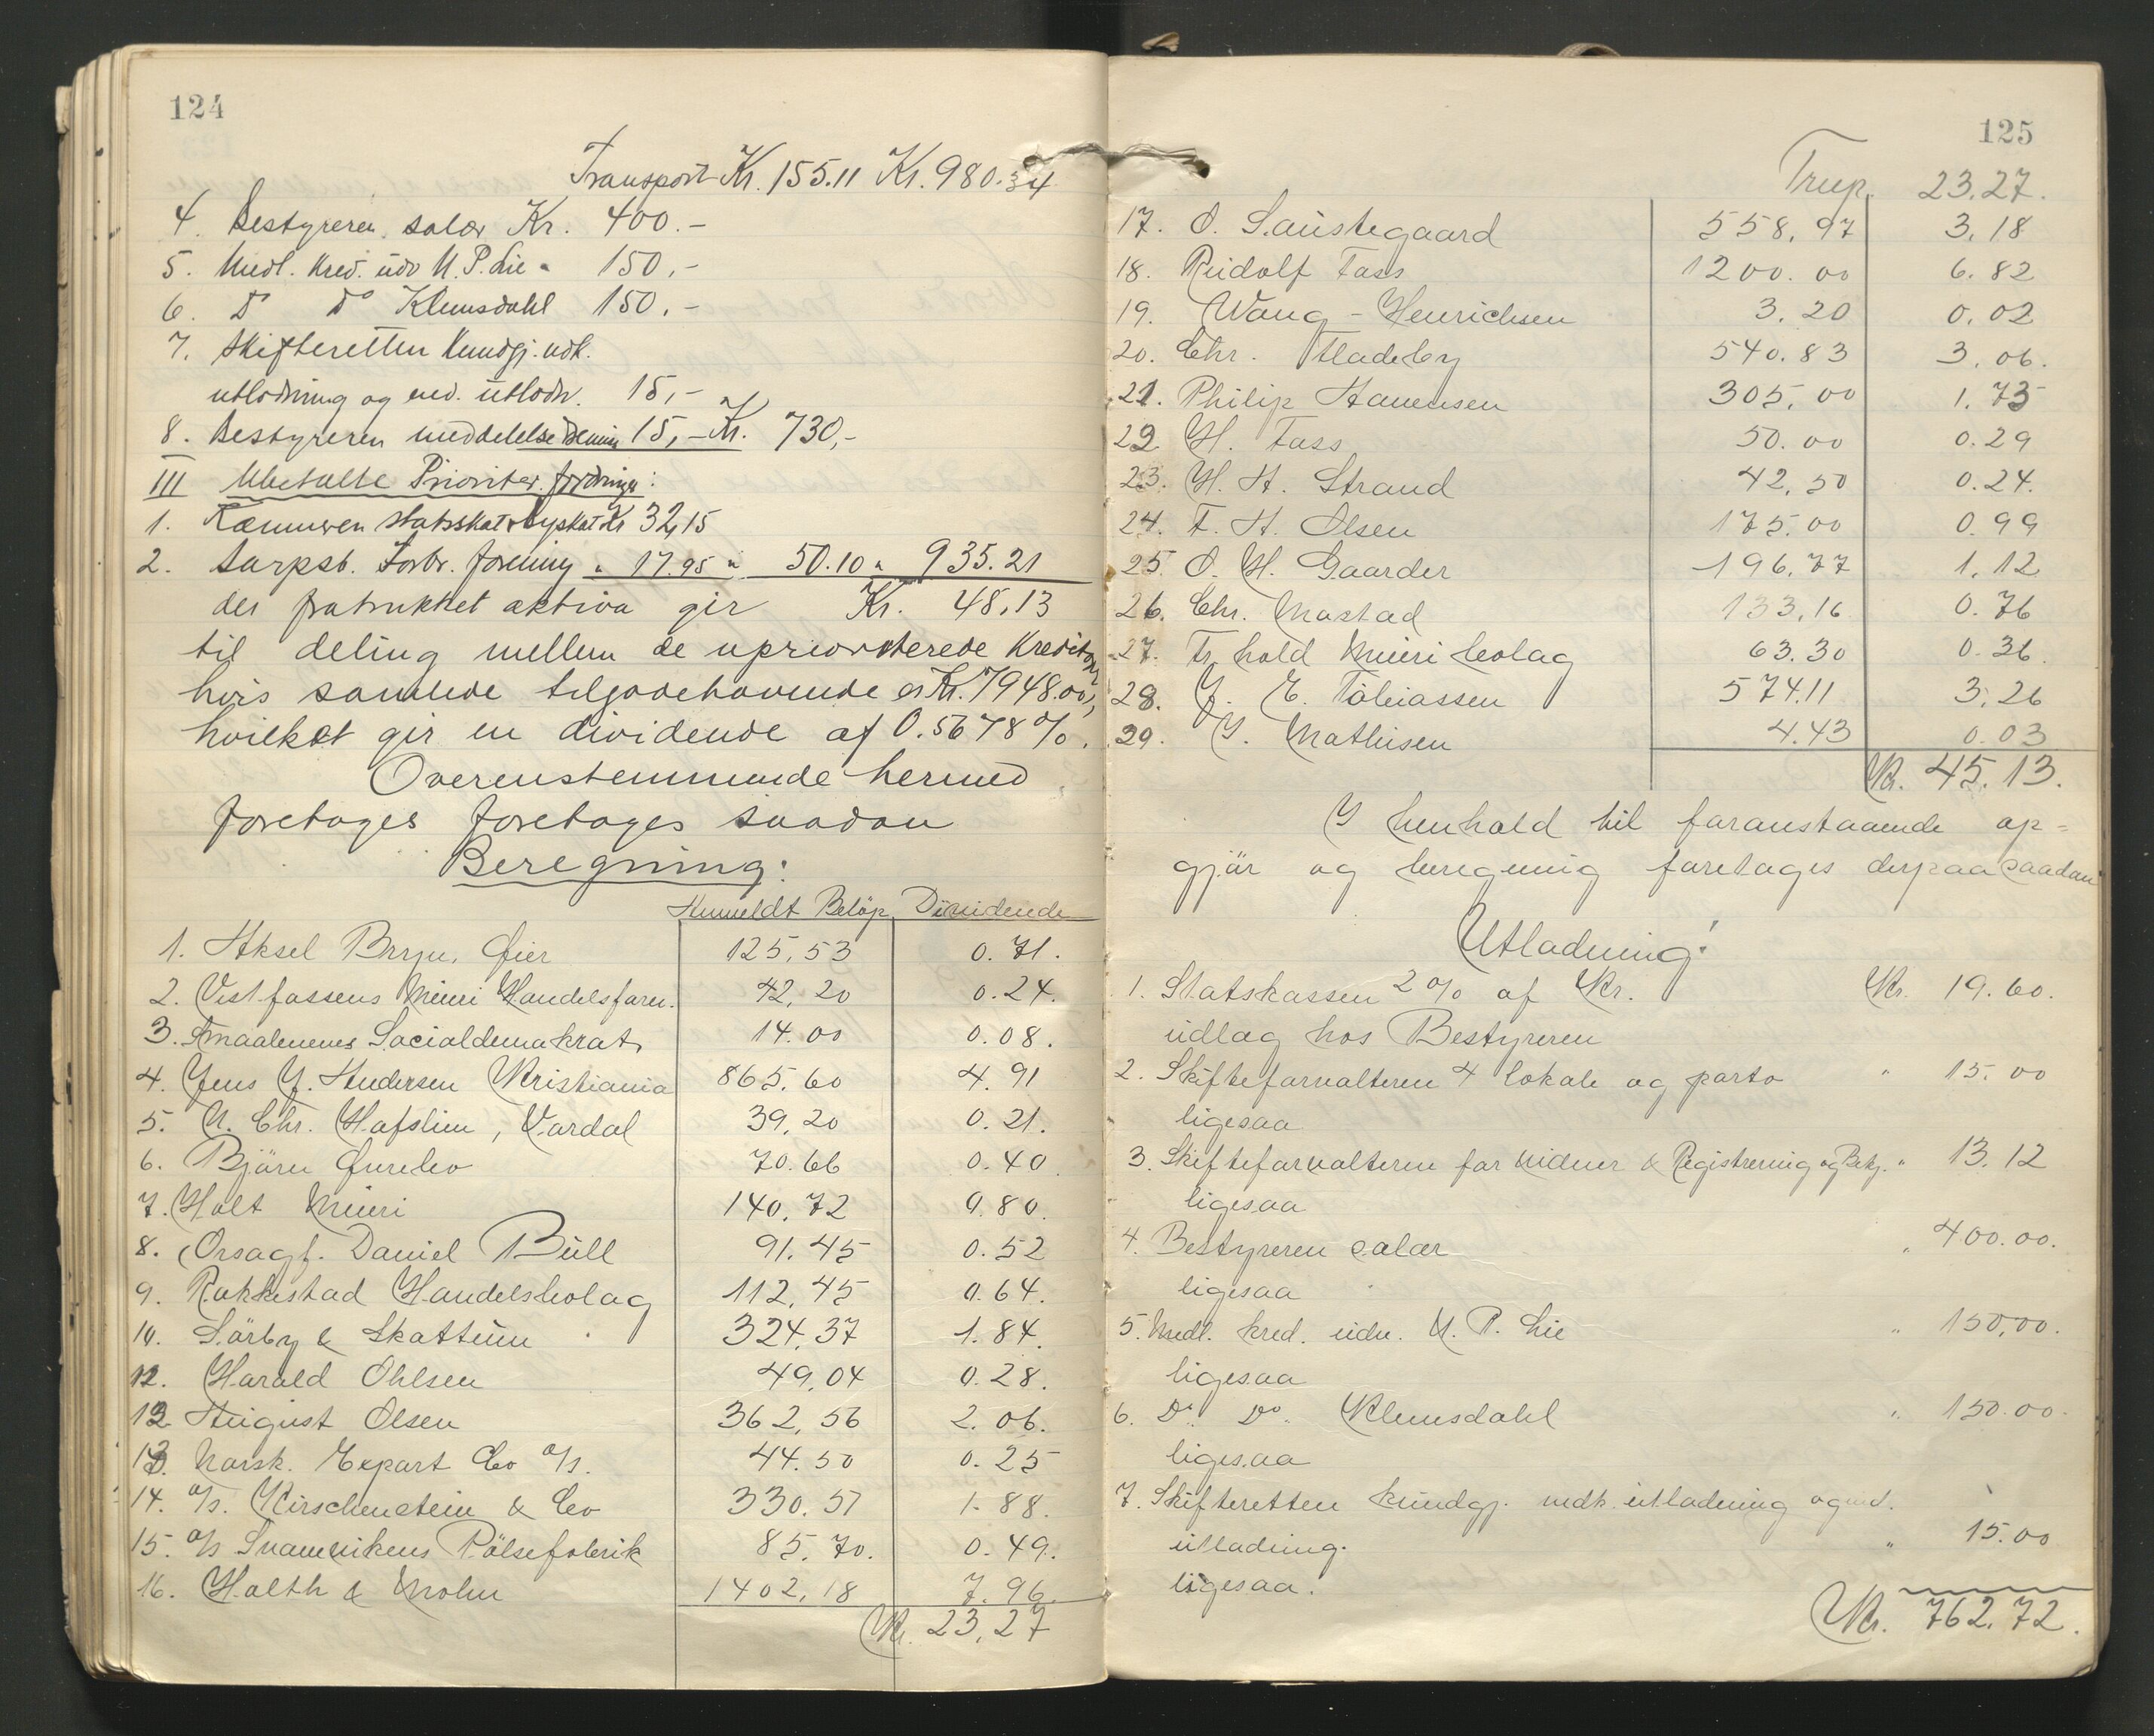 124
Transport Kr. 155.11 Kr. 980.34
4. Bestyreren salær Kr. 400.-
5. Medl. kred. udv N. P. Lie " 150,-
6. Do Do Klemsdahl 150.-
7. Skifteretten Kundgj. vdk.
utlodning og end. utlodn. 15,-
8. Bestyreren meddelelse 15,- Kr. 730,-
III Ubetalte Prioriter. fordringer:
1. Kæmneren statsskat & byskat Kr 32,15
2. Sarpsb. Forbr. forening " 17.95 " 50.10 " 935.21
der fratrukket aktiva gir Kr. 45,13
til deling mellem de uprioriterede Kreditorer
hvis samlede tilgodehavende er Kr. 7948.00,
hvilket gir en dividende af 0.5678%.
Overenstemmende hermed
foretages foretages saadan
Beregning:
Anmeldt Belöp. Dividende
1. Aksel Bryn. Öier 125,53 0.71.
2. Vestfossens Meieri Handelsforen. 42,20 0.24.
3. Smaalenenes Socialdemokrat, 14.00 0.08.
4. Jens J. Andersen Kristiania 865.60 4.91
5. N. Chr. Hafslien, Vardal 39,20 0.21.
6. Björn Gurebo 70.66 0.40
7. Holt Meieri 140.72 0.80.
8. Orsagf. Daniel Büll 91.45 0.52
9. Rakkestad Handelsbolag 112,45 0.64.
10. Sörby & Skattum 324,37 1.84.
12. Harald Ohlsen 49,04 0.28.
12 August Olsen 362,56 2.06.
13. Norsk. Export Co A/s. 44.50 0.25
14. A/s. Kirschenstein & Co 330.57 1.88.
15. A/s Svanevikens Pölsefabrik 85.70. 0.49.
16. Holth & Mohn 1402,18 7.96.
Kr. 23,27
125
Trsp. 23.27.
17. O. Saustegaard 558,97 3,18
18. Rudolf Fass 1200.00 6.82
19. Wang-Henrichsen 3.20 0.02
20. Chr. Fladeby 540.83 3.06.
21. Philip Hanensen 305,00 1.73
22. H. Fass 50.00 0.29
23. H. A. Strand 42,50 0.24.
24. F. A. Olsen 175.00 0.99
25 O. H. Gaarder 196,77 1,12
26. Chr. Mastad 133,16 0.76
27. Tr hold Meieri bolag 63.30 0.36
28. J. E. Tobiassen 574.11 3,26
29. J. Mathisen 4.43 0.03
Kr. 45.13.
I henhold til foranstaaende op=
gjör og beregning foretages derpaa saadan
Utlodning!
1. Statskassen 2% af Kr. Kr. 19.60.
udlag hos Bestyreren
2. Skifteforvalteren 4 lokale og porto " 15.00
ligesaa
3. Skifteforvalteren for vidner & Registrering og Bekj. " 13.12
ligesaa
4. Bestyreren salær " 400.00.
ligesaa
5. Medl. kred. udv. N. P. Lie " 150,00.
ligesaa
6. Do. Do. Klemsdahl " 150.00.
ligesaa
7. Skifteretten kundgj. vedk. utlodning og end.
utlodning. " 15.00
ligesaa.
Kr. 762.72.